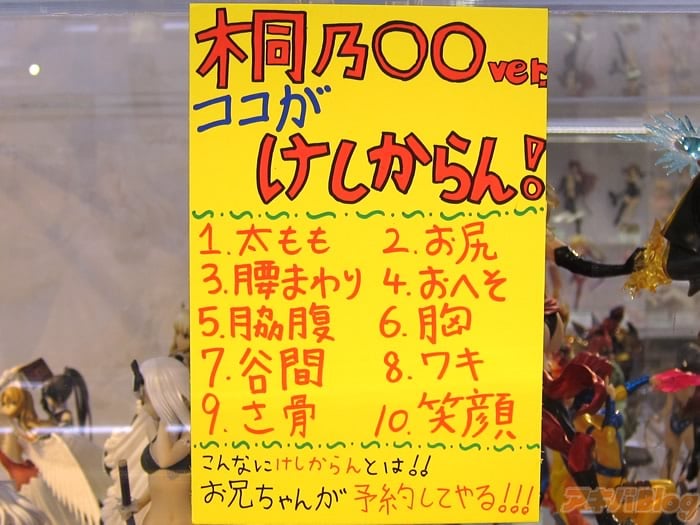 桐乃〇〇ver.
ココが
けしからん!
1.太もも 2.お尻
3.腰まわり 4.おへそ
5.脇腹 6.胸
7.谷間 8.ワキ
9.さ骨 10.笑顔
こんなにけしからんとは!!
お兄ちゃんが予約してやる!!!
アキバBlog